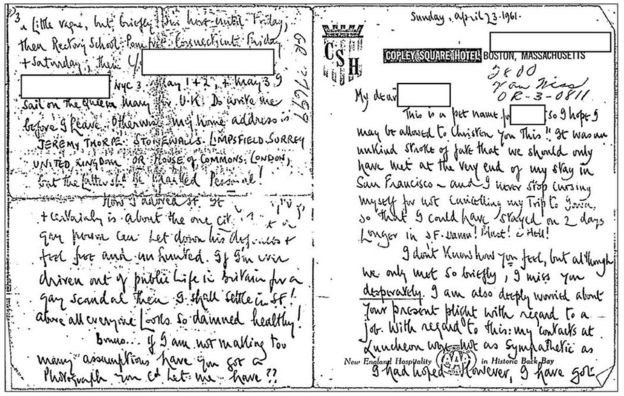 3
a little vague, but briefly
then Rectory School Pomfret, Connecticut Friday
+ Saturday, then c/
NYC 3 May 1 + 2, + May 3
sail on the Queen Mary to U.K. Do write me
before I leave. Otherwise my home address is
JEREMY THORPE. STONEWALLS. LIMPSFIELD. SURREY
UNITED KINGDOM OR HOUSE OF COMMONS, LONDON,
but the latter is marked Personal!
How I adored SF. It
+ certainly is about the one city
gay person can let down his defenses +
feel free and unhunted. If I'm ever
driven out of public life in Britain for a
gay scandal then I shall settle in SF!
above all everyone looks so damned healthy!
If I am not making too
many assumptions have you got a
Photograph you cd let me have??
Sunday, April 23. 1961.
CSH
COPLEY SQUARE HOTEL BOSTON, MASSACHUSETTS
5800
Van Ness
OR-3-0811
My dear
This is a pet name for so I hope I
may be allowed to christen you this!! It was an
unkind stroke of fate that we should only
have met at the very end of my stay in
San Francisco - and I never stop cursing
myself for not cancelling my trip to
so that I could have stayed on 2 days
longer in S.F. Damn! Blast! + Hell!
I don't know how you feel, but although
we only met so briefly, I miss you
desperately. I am also deeply worried about
your present plight with regard to a
job. With regard to this: my contacts at
Luncheon were not as sympathetic as
New England Hospitality in Historic Back Bay
I had hoped. However, I have got